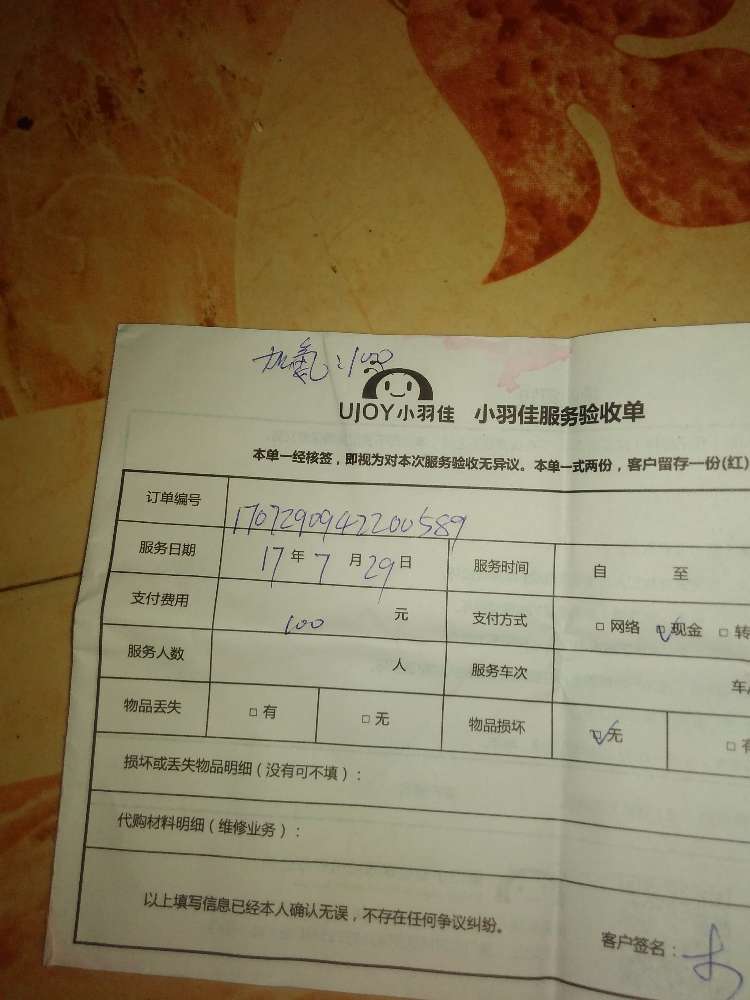 加氟:100
UJOY小羽佳 小羽佳服务验收单
本单一经核签，即视为对本次服务验收无异议。本单一式两份，客户留存一份(红)
订单编号 1707290942200589
服务日期 17年7月29日 服务时间 自 至
支付费用 100 元 支付方式 □网络 ☑现金 □转
服务人数 人 服务车次 车
物品丢失 □有 □无 物品损坏 ☑无 □有
损坏或丢失物品明细（没有可不填）：
代购材料明细（维修业务）：
以上填写信息已经本人确认无误，不存在任何争议纠纷。
客户签名：